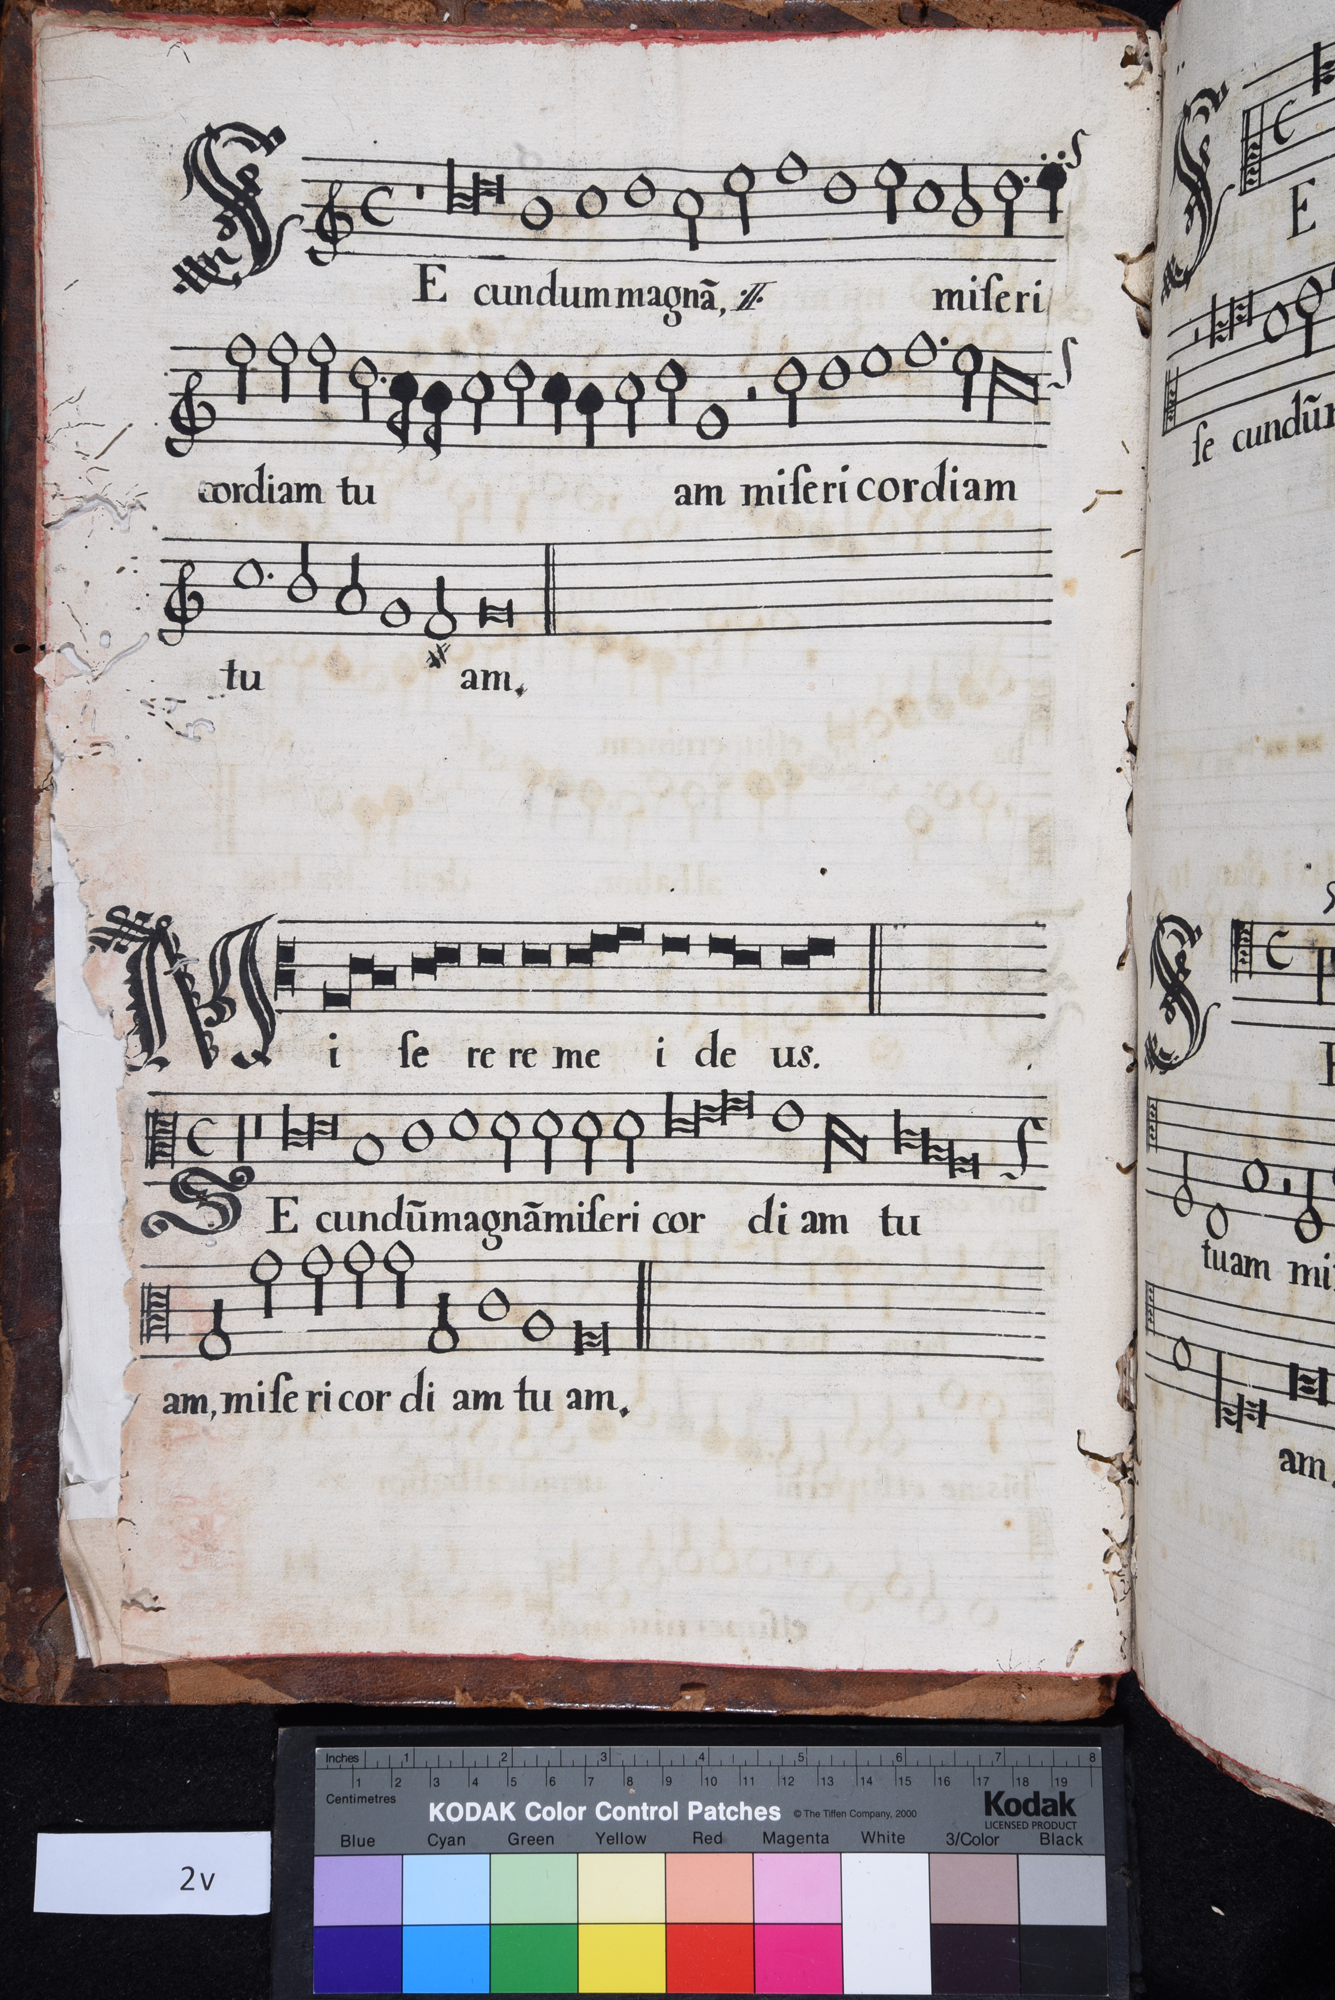 SE cundum magnã, :̸: miſeri
cordiam tu am miſeri cordiam
tu am.
Mi ſe re re me i de us.
SE cundũ magnã miſeri cor di am tu
am, miſe ri cor di am tu am.
E
ſe cundũ
E
tuam mi
am
Inches 1 2 3 4 5 6 7 8
Centimetres 1 2 3 4 5 6 7 8 9 10 11 12 13 14 15 16 17 18 19
KODAK Color Control Patches © The Tiffen Company, 2000 Kodak
LICENSED PRODUCT
Blue Cyan Green Yellow Red Magenta White 3/Color Black
2v